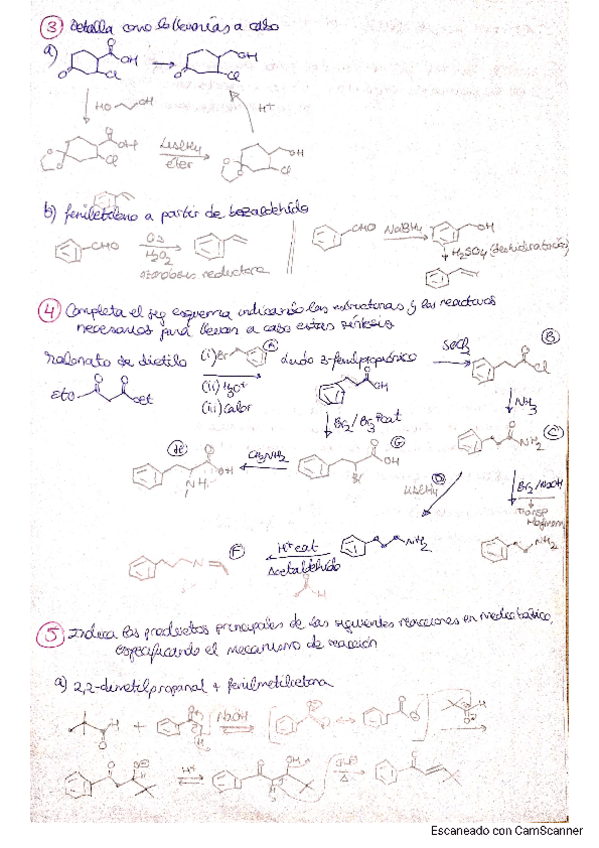 ③ Detalla como lo llevarías a cabo
a)
OH
Cl
O
OH
Cl
HO OH
H⁺
OH
Cl
LiAlH4
éter
OH
Cl
b) feniletileno a partir de benzaldehído
CHO
O3
H2O2
ozonólisis reductora
CHO
NaBH4
OH
H2SO4 (deshidratación)
④ Completa el sig esquema indicando las estructuras y los reactivos
necesarios para llevar a cabo estas síntesis
Malonato de dietilo
(i) Br
A
(ii) H3O⁺
(iii) calor
EtO OEt
ácido 3-fenilpropanónico
OH
SOCl2
B
Cl
NH3
C
NH2
Br2/NaOH
NH2
Br2/Br3P cat
G
OH
Br
CH3NH2
OH
LiAlH4
D
NH2
H⁺ cat
Acetaldehído
F
N
⑤ Indica los productos principales de las siguientes reacciones en medio básico,
especificando el mecanismo de reacción
a) 2,2-dimetilpropanal + fenilmetilcetona
H
+
NaOH
H
H⁺
OH
Δ
Escaneado con CamScanner